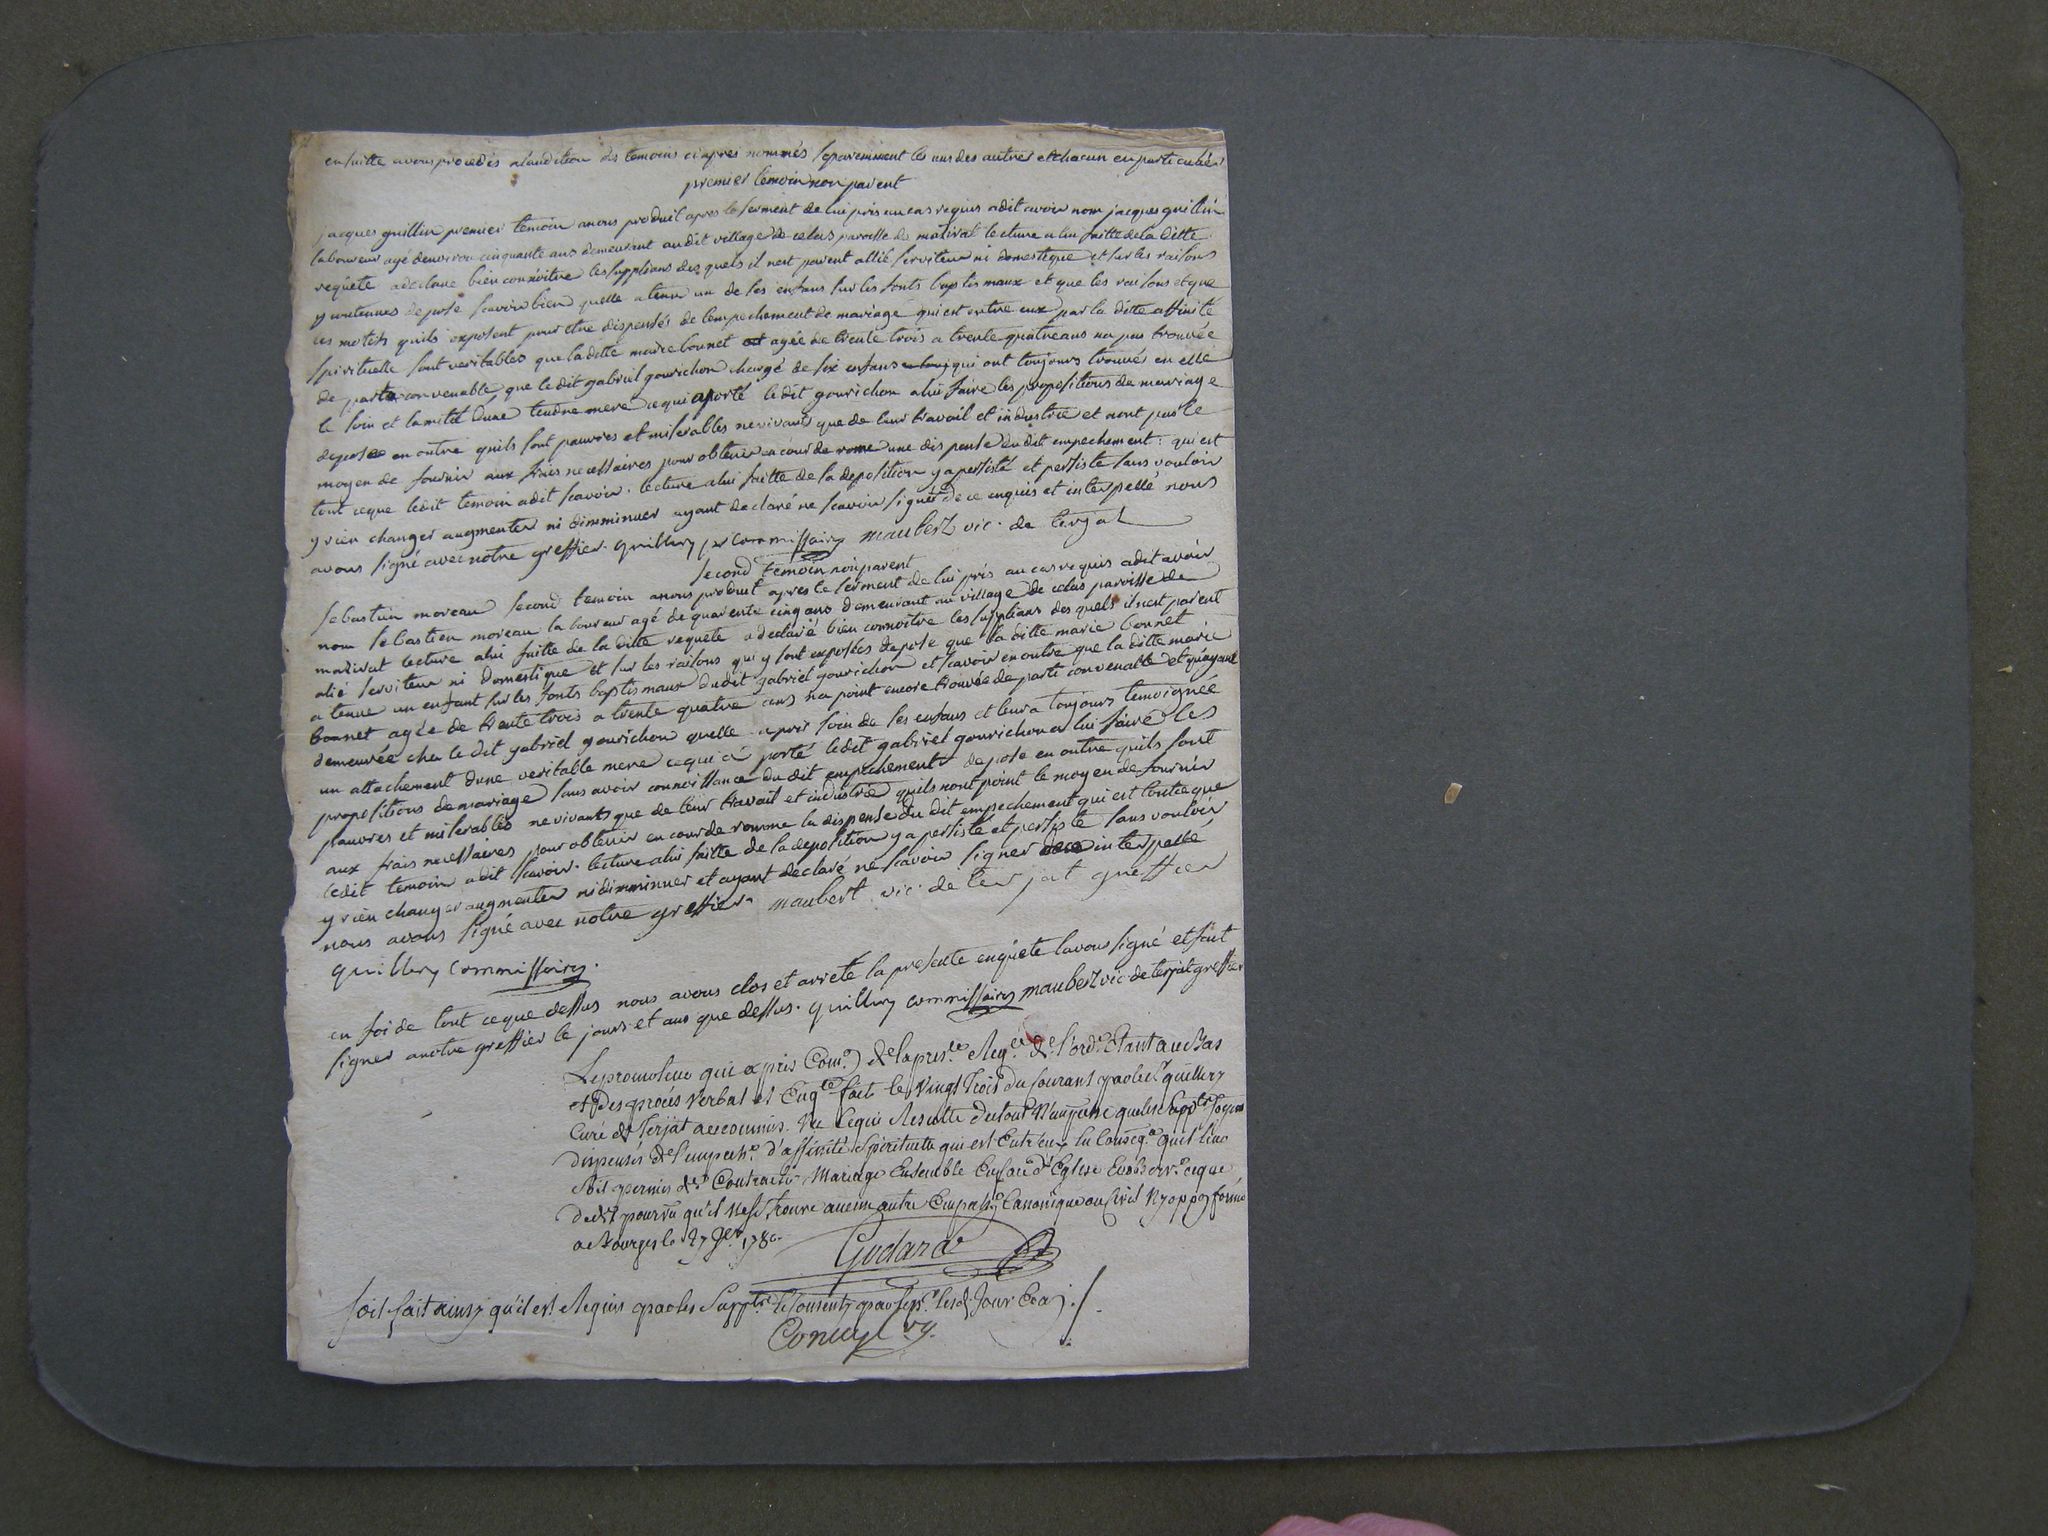 ensuitte avons procedés a laudition des temoins ciapres nommés separemment les uns des autres et chacun en particulier
premier temoin non parent
jacques guillin premier temoin anous produit apres le serment de lui pris au cas requis adit avoir nom jacques guillin
laboureur agé denviron cinquante ans demeurant audit village de celas paroisse de mazirat lecture a lui faitte de la ditte
requête a declare bien connoitre les supplians des quels il nest parent allié serviteur ni domestique et sur les raisons
y contenues depose scavoir bien quelle a tenu un de ses enfans sur les fonts baptismaux et que les raisons et que
les motifs quils exposent pour etre dispensés de lempechement de mariage qui est entre eux par la ditte affinité
spirituelle sont veritables que la ditte marie bonnet est agée de trente trois a trente quatre ans na pas trouvée
de partis convenable, que le dit gabriel gourichon chargé de six enfans qui ont toujours trouvés en elle
le soin et lamitié dune tendre mere ce qui aporté ledit gourichon a lui faire les propositions de mariage
depose en outre quils sont pauvres et miserables ne vivants que de leur travail et industrie et nont pas le
moyen de fournir aux frais necessaires pour obtenir en cour de rome une dispense du dit empechement : qui est
tout ceque ledit temoin adit scavoir. lecture alui faitte de sa deposition y a persisté et persiste sans vouloir
y rien changer augmenter ni dimminuer ayant declaré ne scavoir signer de ce enquis et interpellé nous
avons signé avec notre greffier. quillery commissaire maubert vic. de terjat
second temoin non parent
sebastien moreau second temoin anous produit apres le serment de lui pris au cas requis adit avoir
nom sebastien moreau laboureur agé de quarente cinq ans demeurant au village de celas paroisse de
mazirat lecture alui faitte de la ditte requete a declaré bien connoitre les supplians des quels il nest parent
alié serviteur ni domestique et sur les raisons qui y sont exposées depose que la ditte marie bonnet
a tenue un enfant sur les fonts baptismaux dudit gabriel gourichon et scavoir en outre que la ditte marie
bonnet agée de trente trois a trente quatre ans na point encore trouvée de parti convenable et quayant
demeurée chez le dit gabriel gourichon quelle a pris soin de ses enfans et leur a toujours temoignée
un attachement dune veritable mere ce qui a porté ledit gabriel gourichon a lui faire les
propositions de mariage sans avoir connoissance du dit empechement depose en outre quils sont
pauvres et miserables ne vivants que de leur travail et industrie quils nont point le moyen de fournir
aux frais necessaires pour obtenir en cour de romme la dispense du dit empechement qui est tout ce que
ledit temoin adit scavoir. lecture alui faitte de sa deposition y a persisté et persiste sans vouloir
y rien changer augmenter ni dimminuer et ayant declaré ne scavoir signer de ce interpellé
nous avons signé avec notre greffier. maubert vic. de terjat greffier
quillery commissaire.
en foi de tout ce que dessus nous avons clos et arreté la presente enquete lavons signé et fait
signer a notre greffier le jours et ans que dessus. quillery commissaire maubert vic de terjat greffier
Le promoteur qui a pris Com.on de la pres.te Req.te de l'ord.e Etant au bas
et des procés Verbal et Enq.te fait le vingt trois du Courant par le s.r quillery
Curé de Terjat accommis. Vu Ce qui Resulte du tout N'empeche que les supp.ts soyent
dispensés de l'empech.t d'affinité Spirituelle qui est Entr'eux En Conseq.ce qu'il leur
soit permis de Contracter Mariage Ensemble En face d'Eglise En observ.t ce que
de dt pourvu qu'il ne se Trouve aucun autre Empech.t Canonique ou Civil Ny opp.on formée
a Bourges le 27 1780.
Godard
soit fait ainsy qu'il est Requis par les Supp.ts et Consenty par le pr.r lesd. Jour Et an ./.
vg.